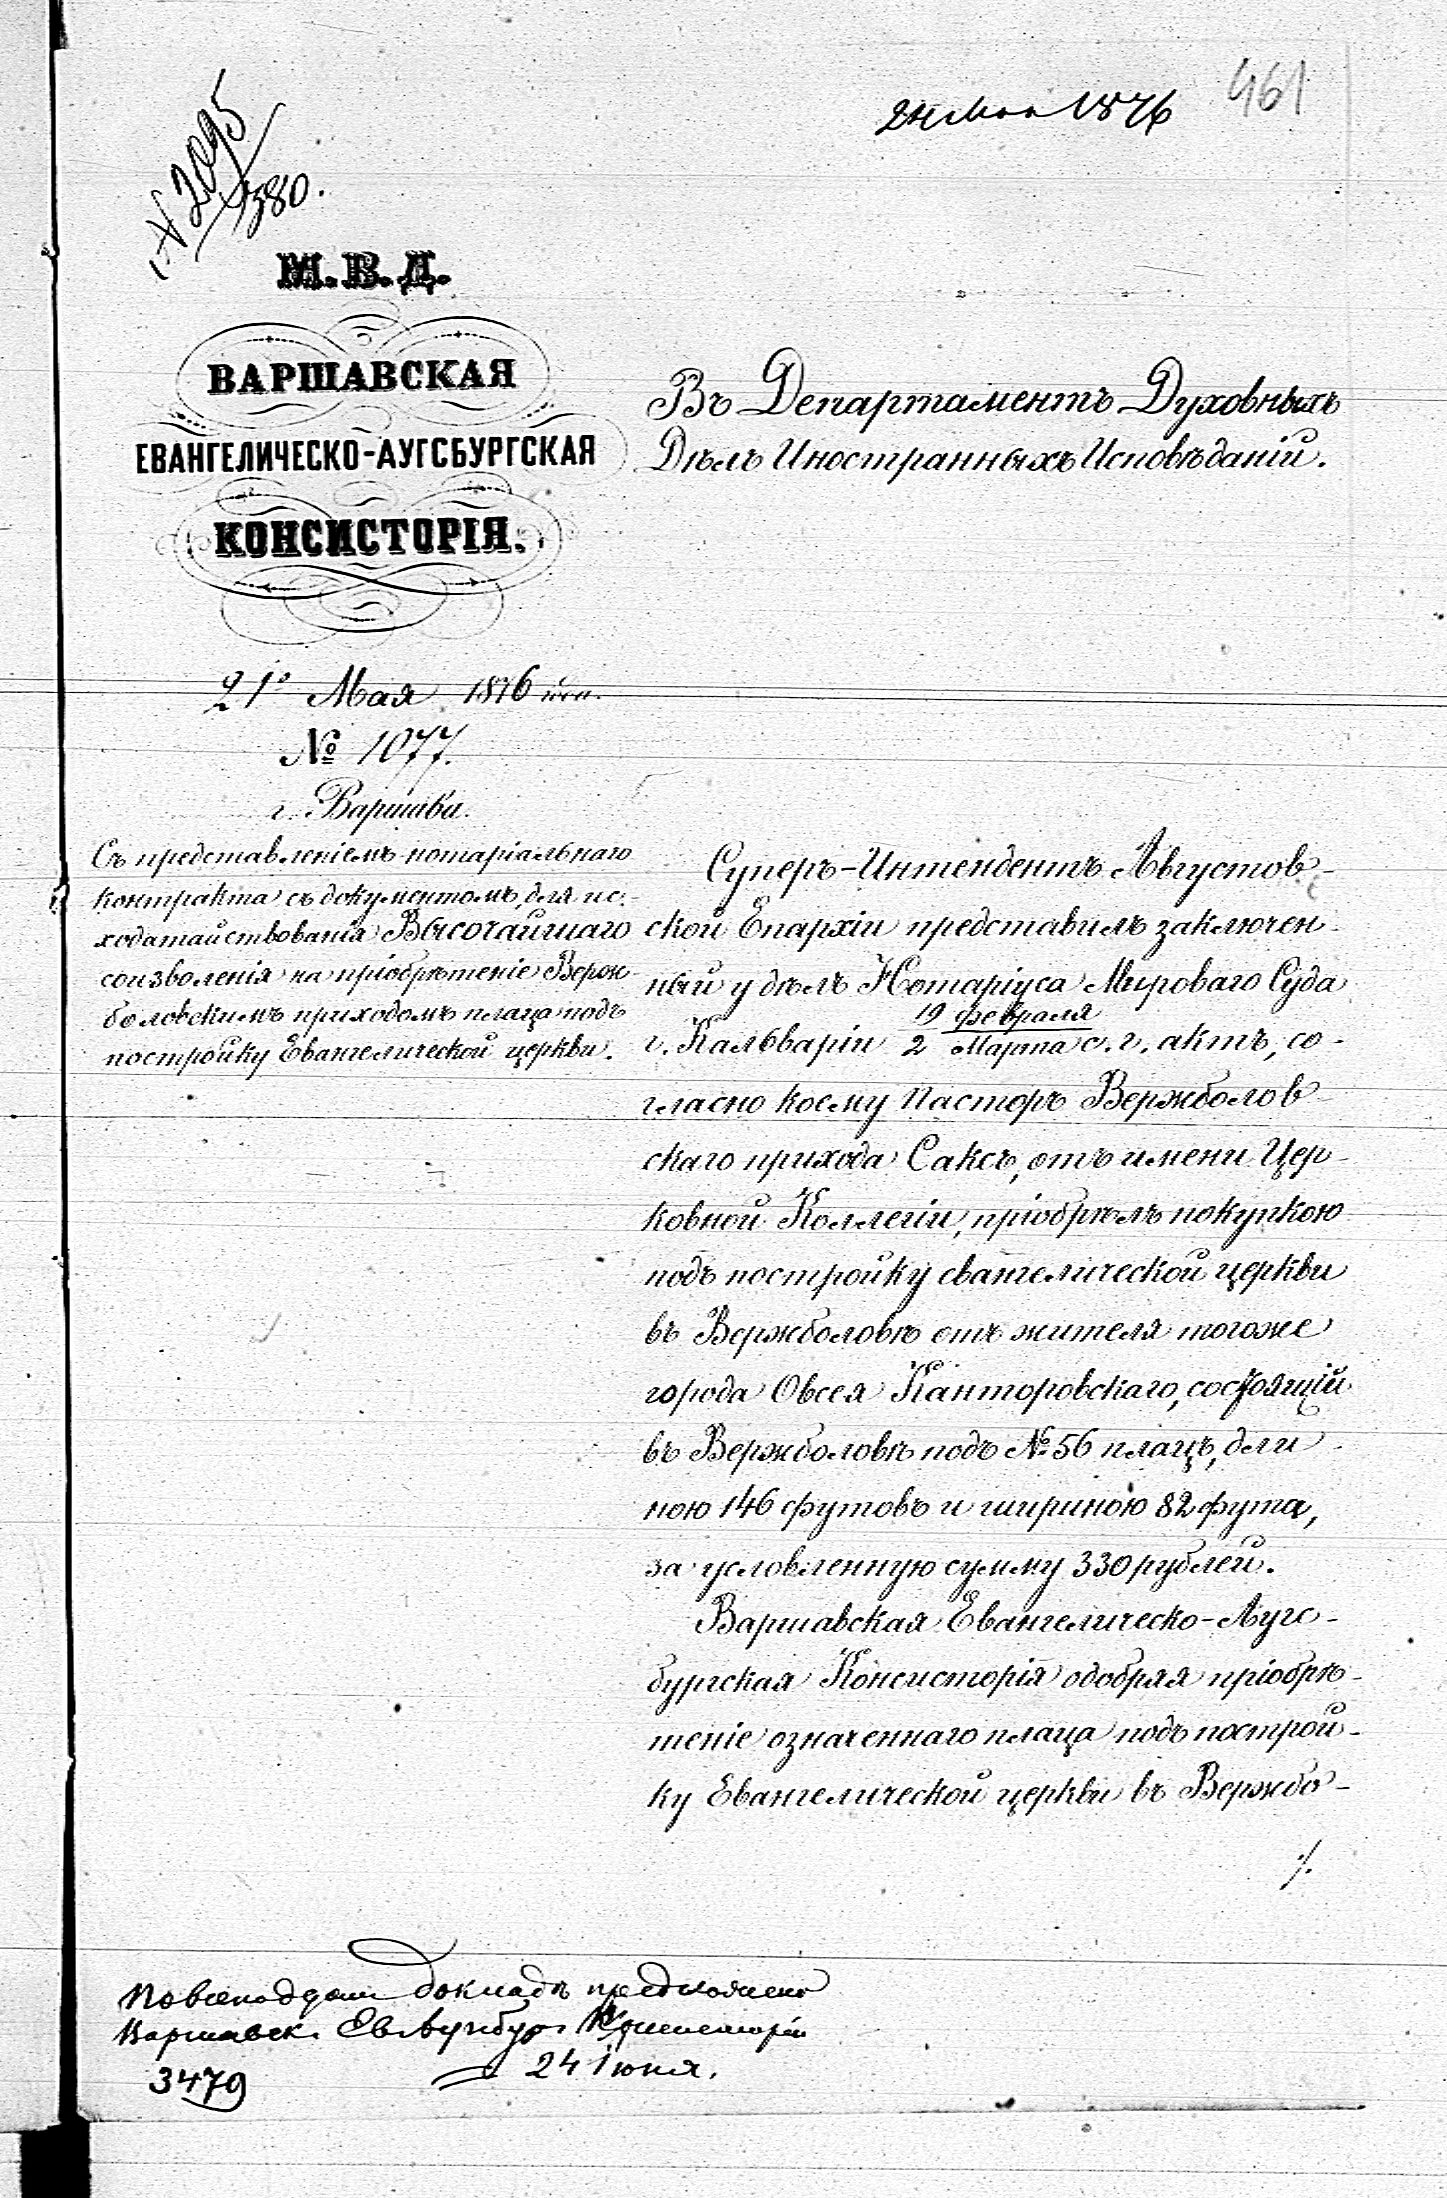 24 Мая 1876
461
№ 2095
1380.
М.В.Д.
ВАРШАВСКАЯ
ЕВАНГЕЛИЧЕСКО-АУГСБУРГСКАЯ
КОНСИСТОРІЯ.
21го Мая 1876
№ 1077.
г. Варшава.
Съ представленіемъ нотаріальнаго
контракта съ документомъ, для ис-
ходатайствованія Высочайшаго
соизволенія на пріобрѣтеніе Верж-
боловскимъ приходомъ плаца подъ
постройку Евангелической церкви.
Въ Департаментъ Духовныхъ
Дѣлъ Иностранныхъ Исповѣданій.
Суперъ-Интендентъ Августов-
ской Епархіи представилъ заключен-
ный у дѣлъ Нотаріуса Мироваго Суда
г. Кальваріи 19 февраля / 2 Марта с. г. актъ, со-
гласно коему Пасторъ Вержболов-
скаго прихода Саксъ, отъ имени Цер-
ковной Коллегіи, пріобрѣлъ покупкою
подъ постройку евангелической церкви
въ Вержболовѣ отъ жителя тогоже
города Овсея Канторовскаго, состоящій
въ Вержболовѣ подъ № 56 плацъ, дли-
ною 146 футовъ и шириною 82 фута,
за условленную сумму 330 рублей.
Варшавская Евангелическо-Аугс-
бургская Консисторія одобряя пріобрѣ-
теніе означеннаго плаца подъ построй-
ку Евангелической церкви въ Вержбо-
./.
По всеподдан докладъ предложено
Варшавск. Ев Аугсбург Консисторіи
24 Іюня.
3479